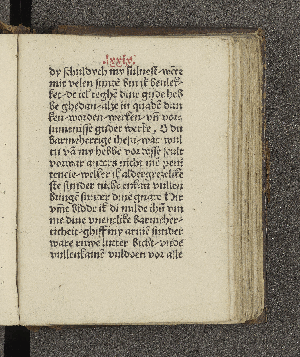 lxxix
dy schuldych my sulnest were
mit velen sunde bin ik beulek
ket de ic teghe dine gude heb
be ghedan alse in quade dan
ken worden werken vn vor
sumenisse guder werke O du
barmehertige ihesu wat wul
tu vā my hebbe
vorwar anders nicht men peni
tencie welker is aldergrotelike
ste sunder nicht enkan vullen
bringe sunder dine gnade Dar
vmme bidde ik di milde ihū vm
me dine vnentlike barmeher
ticheit ghiff my armē sunder
ware ruwe luter bicht vnde
vullenkame vuldoen vor alle